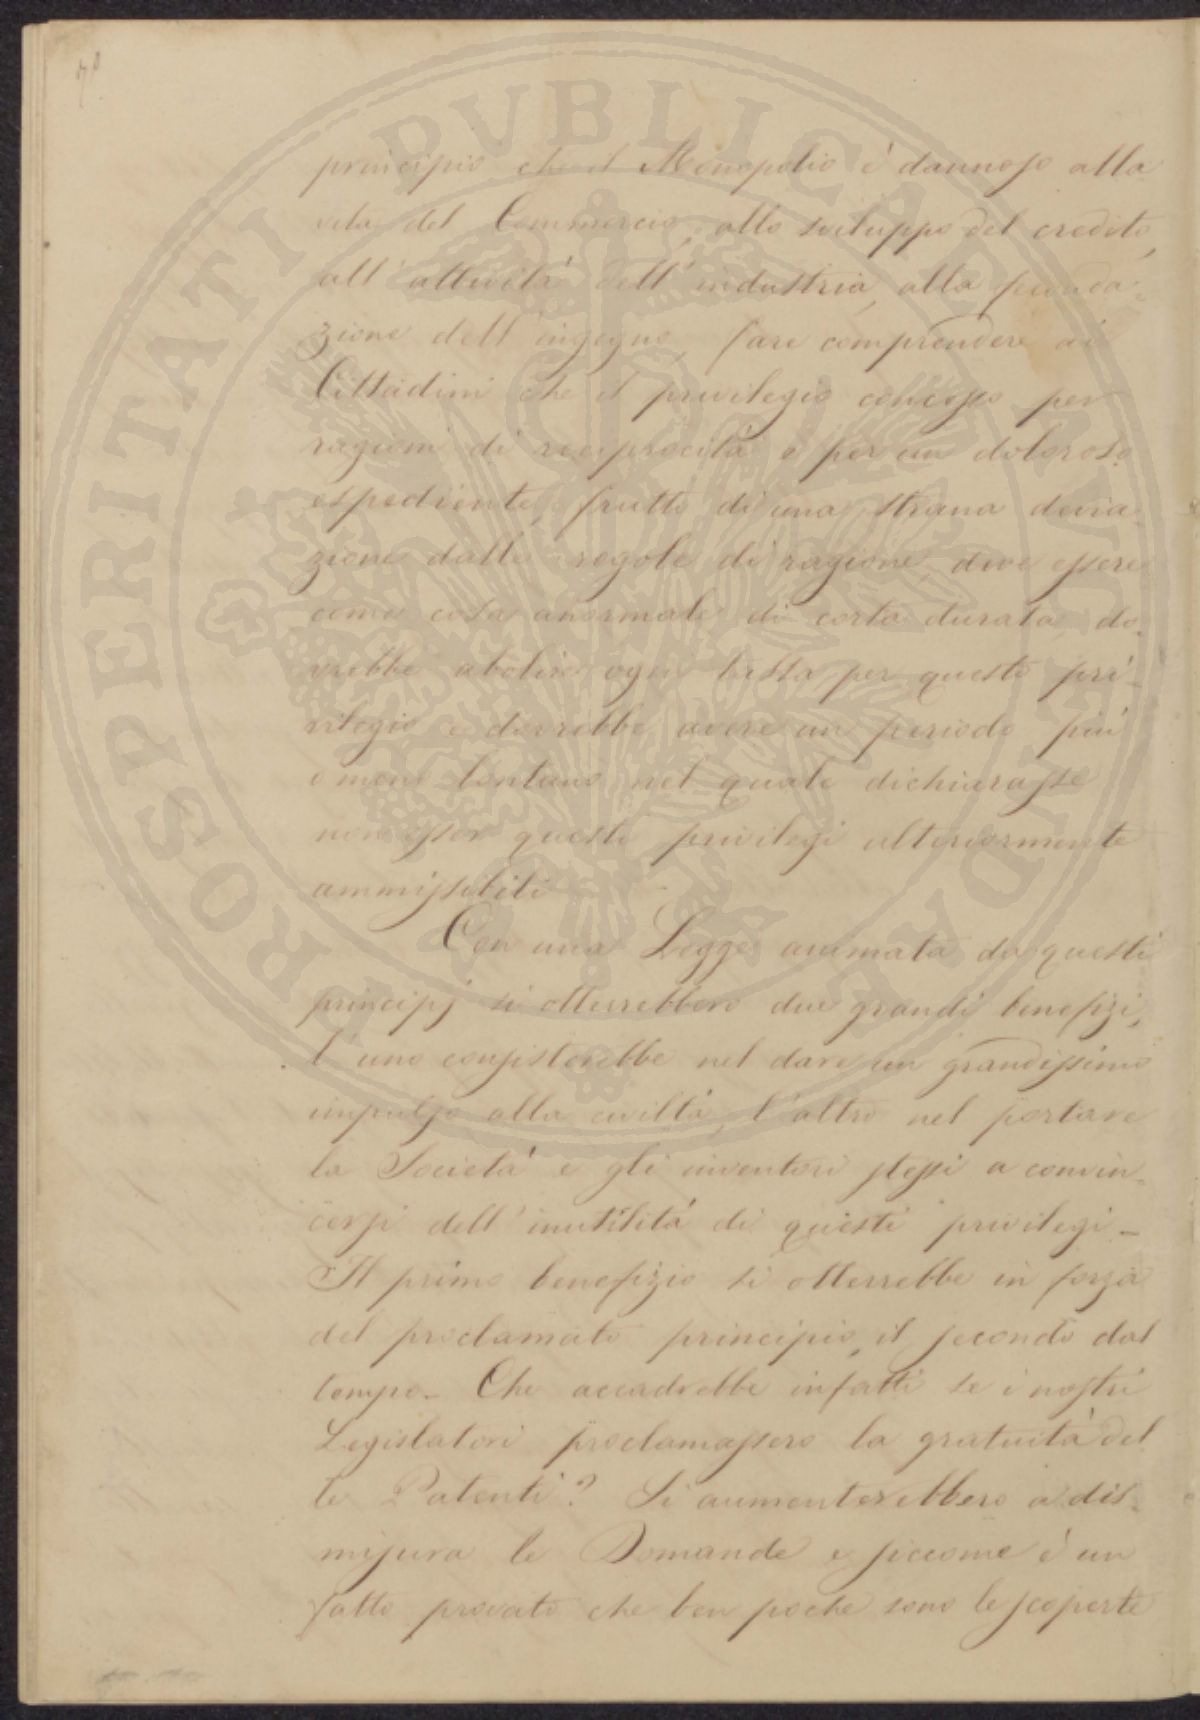 principio che il Monopolio è dannoso alla
vita del Commercio, allo sviluppo del credito,
all'attività dell'industria, alla feconda-
zione dell'ingegno, fare comprendere ai
Cittadini che il privilegio concesso per
ragioni di reciprocità e per un doloroso
espediente, frutto di una strana devia-
zione dalle regole di ragione deve essere
come cosa anormale di corta durata, do-
vrebbe abolire ogni tassa per questo pri-
vilegio e dovrebbe avere un periodo più
o meno lontano nel quale dichiarasse
non esser questi privilegi ulteriormente
ammissibili
Con una Legge animata da questi
principj si otterrebbero due grandi benefizi,
l'uno consisterebbe nel dare un grandissimo
impulso alla civiltà, l'altro nel portare
la Società e gli inventori stessi a convin-
cersi dell'inutilità di questi privilegi –
Il primo benefizio si otterrebbe in forza
del proclamato principio, il secondo dal
tempo – Che accadrebbe infatti se i nostri
Legislatori proclamassero la gratuità del
le Patenti? Si aumenterebbero a dis-
misura le Domande e siccome è un
fatto provato che ben poche sono le scoperte
PROSPERITATI PUBLICAE AUGENDAE